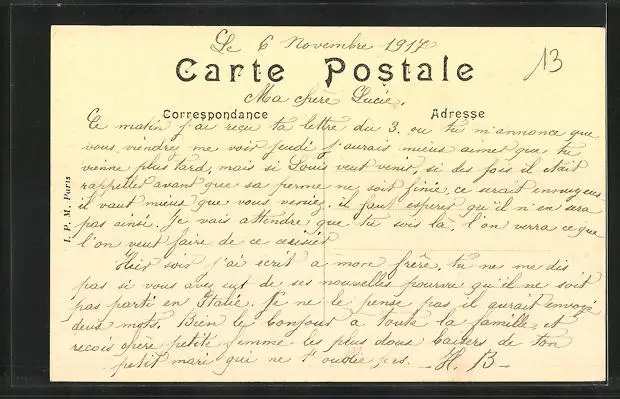 Le 6 Novembre 1917
13
Carte Postale
Ma chère Lucie,
Correspondance
Adresse
Ce matin j'ai reçu ta lettre du 3. ou tu m'annonce que
vous viendrez me voir jeudi j'aurais mieus aimer que tu
vienne plus tard, mais si Louis veut venir, si des fois il etait
rappeller avant que sa perme ne soit finie, ce serait ennuyeus
il vaut mieus que vous veniez. il faut esperer qu'il n'en sera
pas ainsi. Je vais attendre que tu sois la. l'on verra ce que
l'on veut faire de ce
Hier soir j'ai ecrit a mon frère. tu ne me dis
pas si vous avez eut de ses nouvelles pourvu qu'il ne soit
pas parti en Italie. Je ne le pense pas il aurait envoyé
deus mots. Bien le bonjour a toute la famille et
recois chère petite femme les plus dous baisers de ton
petit mari qui ne t'oublie pas. - H. B -
I. P. M. Paris